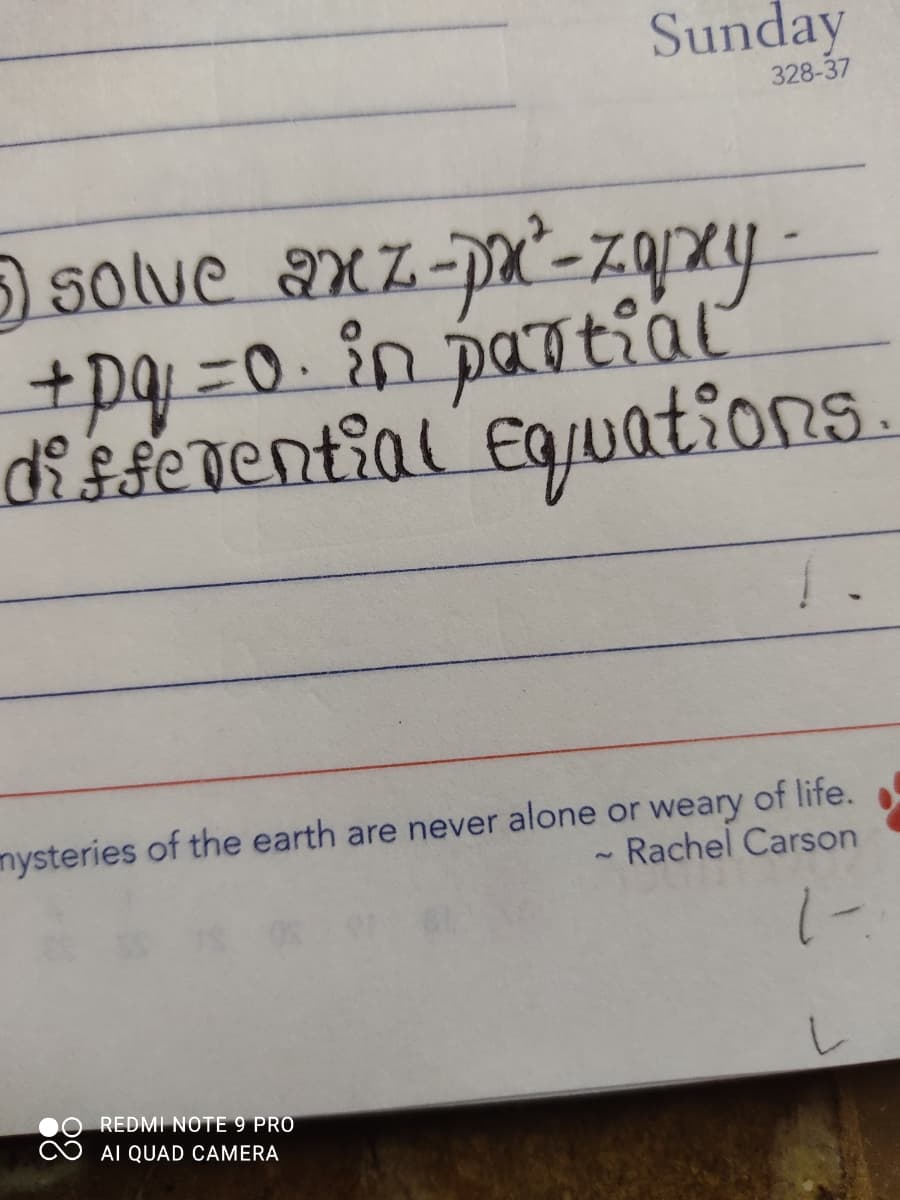 Sunday
328-37
5) solve 2xz-px²-zqxy-
+pq=0. in partial
differential Equations.
mysteries of the earth are never alone or weary of life.
~ Rachel Carson
REDMI NOTE 9 PRO
AI QUAD CAMERA